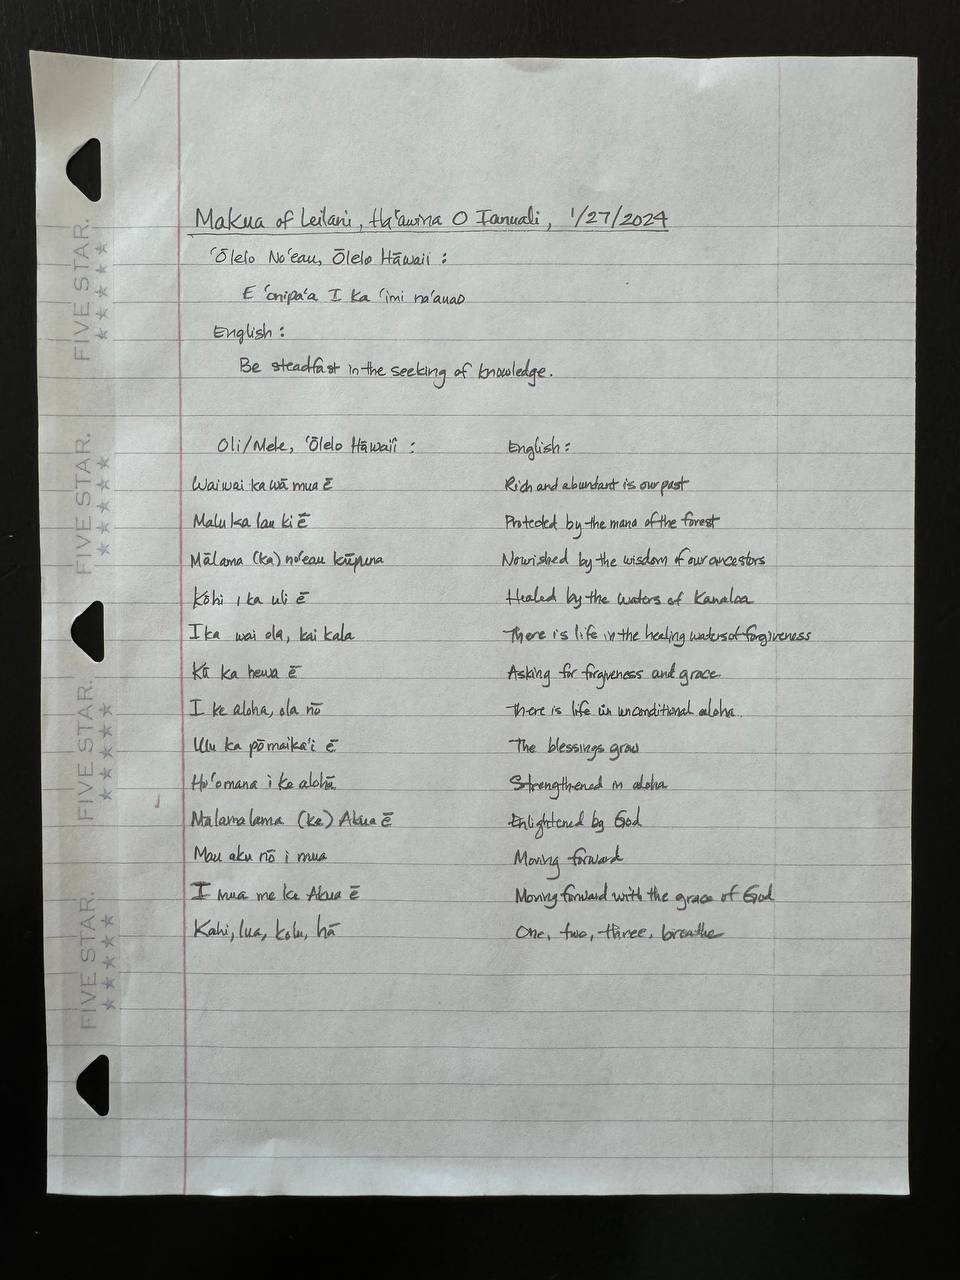 Makua of Leilani, Ha'awina O Ianuali, 1/27/2024
'Ōlelo No'eau, Ōlelo Hāwaii :
E 'onipa'a I Ka 'imi na'auao
English :
Be steadfast in the seeking of knowledge.
Oli/Mele, 'Ōlelo Hāwai'i : English :
Waiwai ka wā mua ē Rich and abundant is our past
Malu ka lau ki ē Protected by the mana of the forest
Mālama (ka) no'eau kūpuna Nourished by the wisdom of our ancestors
Kōhi i ka uli ē Healed by the waters of Kanaloa
I ka wai ola, kai kala There is life in the healing waters of forgiveness
Kū ka hewa ē Asking for forgiveness and grace
I ke aloha, ola nō There is life in unconditional aloha.
Ulu ka pōmaika'i ē The blessings grow
Ho'omana i ke alohā Strengthened in aloha
Malamalama (ke) Akua ē Enlightened by God
Mau aku nō i mua Moving forward
I mua me ke Akua ē Moving forward with the grace of God
Kahi, lua, kolu, hā One, two, three, breathe
FIVE STAR.
FIVE STAR.
FIVE STAR.
FIVE STAR.